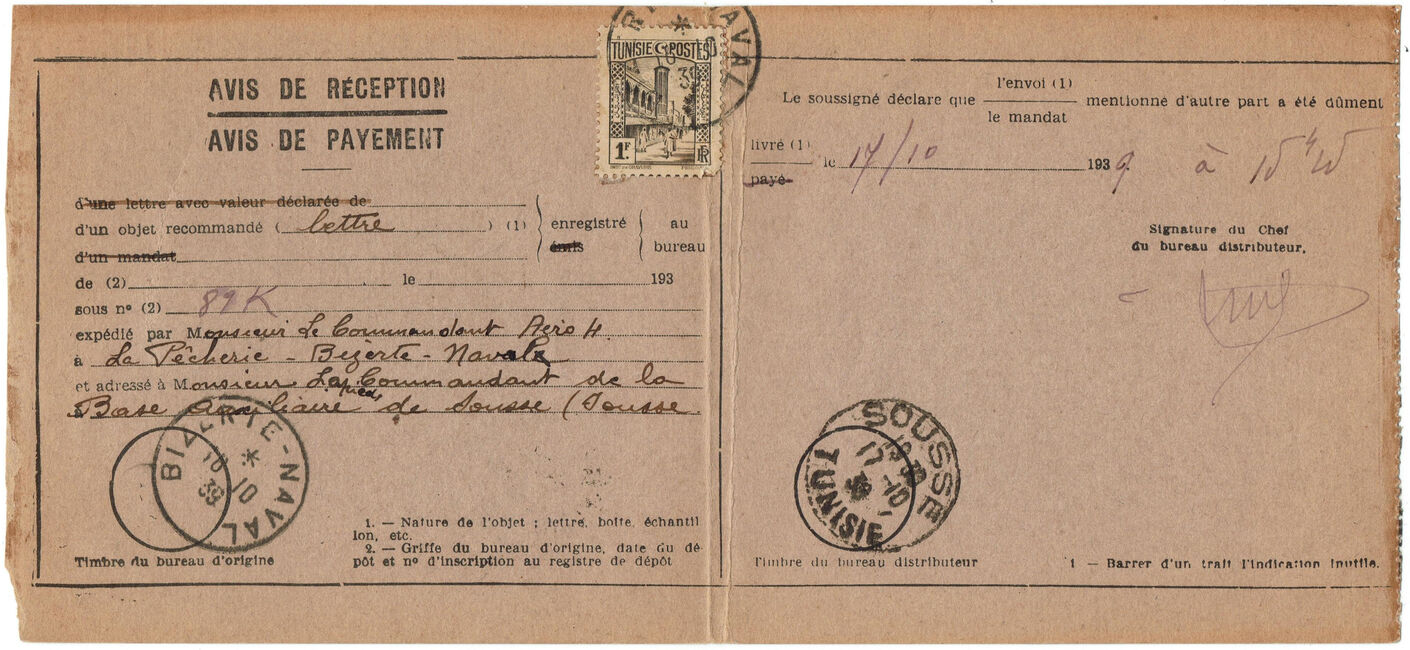 AVIS DE RÉCEPTION
AVIS DE PAYEMENT
d'une lettre avec valeur déclarée de
d'un objet recommandé ( lettre ) (1) enregistré au
d'un mandat émis bureau
de (2) le 193
sous nº (2) 89K
expédié par Monsieur Le Commandant Aéro 4
à La Pêcherie - Bizerte - Navale
et adressé à Monsieur Le Commandant de la
Base Auxiliaire de Sousse (Sousse
BIZERTE-NAVAL
*
10
10
39
Timbre du bureau d'origine
1. — Nature de l'objet ; lettre, boîte, échantil
lon, etc.
2. — Griffe du bureau d'origine, date du dé-
pôt et nº d'inscription au registre de dépôt
TUNISIE POSTES
1F.
RF
NAVAL
*
10
39
Le soussigné déclare que l'envoi (1) mentionné d'autre part a été dûment
le mandat
livré (1)
payé le 17/10 1939 à 15 h 15
Signature du Chef
du bureau distributeur.
SOUSSE
17-10
39
TUNISIE
Timbre du bureau distributeur
1 — Barrer d'un trait l'indication inutile.